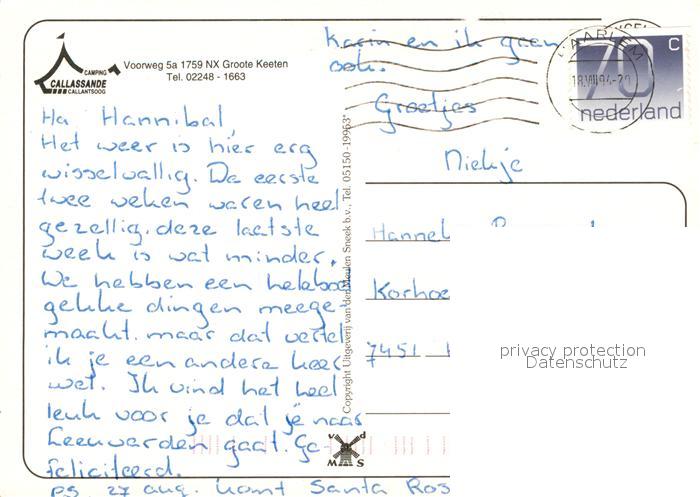 CAMPING
CALLASSANDE
CALLANTSOOG
Voorweg 5a 1759 NX Groote Keeten
Tel. 02248 - 1663
Karin en ik gaan
ook.
Groetjes
Niekje
HAARLEM
18.VIII.94-20
70 C
nederland
Ha Hannibal,
Het weer is hier erg
wisselvallig. De eerste
twee weken waren heel
gezellig, deze laatste
week is wat minder.
We hebben een heleboel
gekke dingen meege-
maakt, maar dat vertel
ik je een andere keer
wel. Ik vind het heel
leuk voor je dat je naar
Leeuwarden gaat. Ge-
feliciteerd.
ps. 27 aug. komt Santa Ros
Copyright Uitgeverij van der Meulen Sneek b.v., Tel. 05150-19963*
Hannel
Korhoe
7451
v d
M S
privacy protection
Datenschutz